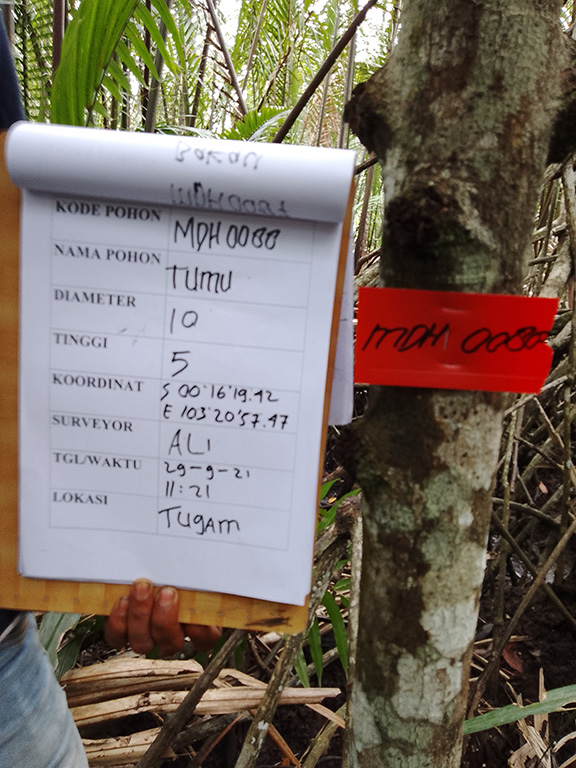 BAKAU
KODE POHON MDH 0080
NAMA POHON TUMU
DIAMETER 10
TINGGI 5
KOORDINAT S 00°16'19.42
E 103°20'57.47
SURVEYOR ALI
TGL/WAKTU 29-9-21
11:21
LOKASI TUGAM
MDH 0080